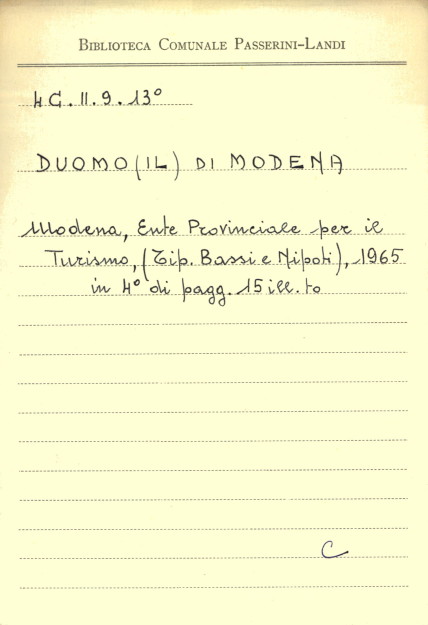 BIBLIOTECA COMUNALE PASSERINI-LANDI
4G.II.9.13°
DUOMO (IL) DI MODENA
Modena, Ente Provinciale per il
Turismo, (Tip. Bassi e Nipoti), 1965
in 4° di pagg. 15 ill. to
C